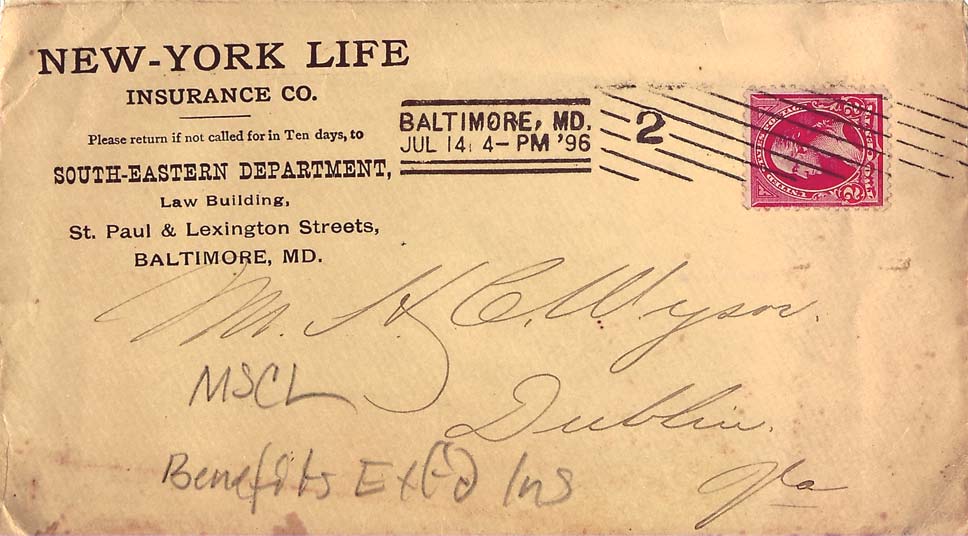 NEW-YORK LIFE
INSURANCE CO.
Please return if not called for in Ten days, to
SOUTH-EASTERN DEPARTMENT,
Law Building,
St. Paul & Lexington Streets,
BALTIMORE, MD.
BALTIMORE, MD.
JUL 14 4-PM '96
2
UNITED STATES POSTAGE
2 2
Mr. H C. Wysor.
Dublin.
Va
MSCL
Benefits Ext'd Ins